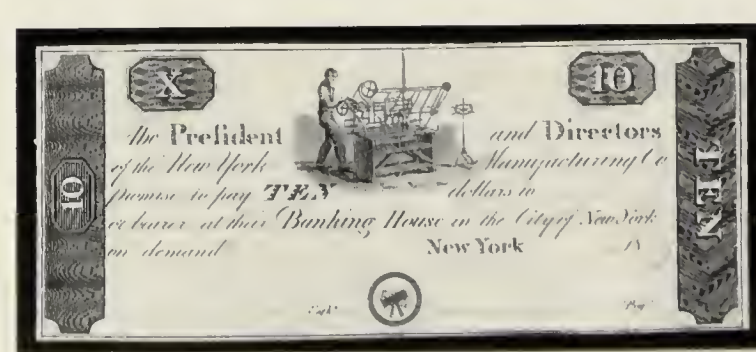 X 10
The Preſident and Directors
of the New York Manufacturing Co
promise to pay TEN dollars to
or bearer at their Banking House in the City of New York
on demand New York 18
Cash.r Pres.t
10
TEN